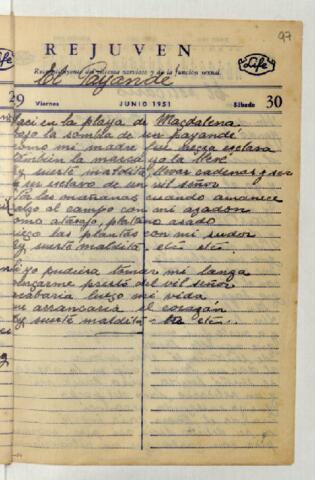 97
REJUVEN
Life
Life
Reconstituyente del sistema nervioso y de la función sexual.
El Payandé
29 Viernes JUNIO 1951 Sábado 30
Nací en la playa de Magdalena
bajo la sombra de un payandé
como mi madre fué negra esclava
también la marca yo la llevé
Ay suerte maldita, llevar cadenas y ser
y ser esclavo de un vil señor
las mañanas cuando amanece
al campo con mi azadón
como atatajo, plátano asado
riego las plantas con mi sudor
Ay suerte maldita - etc etc.
Si yo pudiera tomar mi lanza
vengarme presto del vil señor
acabaría luego mi vida
me arrancaría el corazón
Ay suerte maldita - etc.